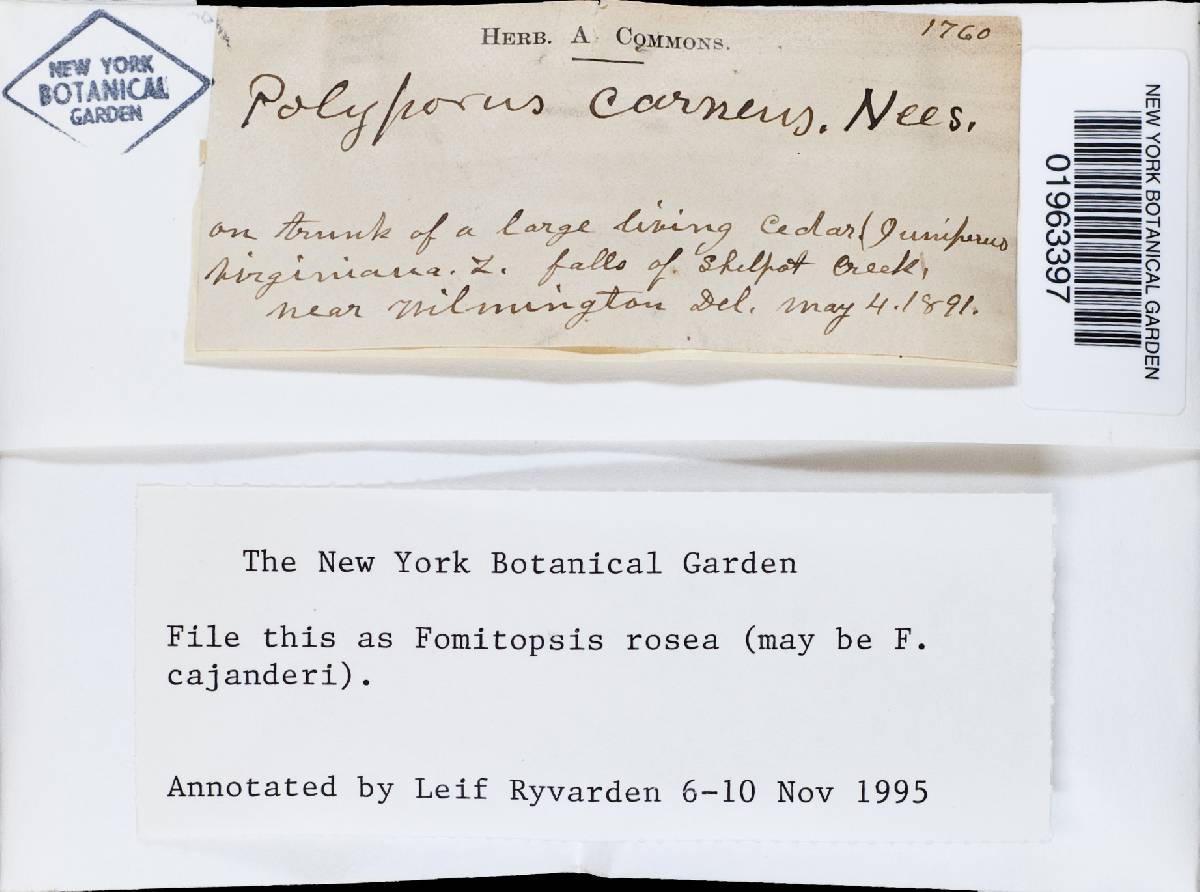 NEW YORK
BOTANICAL
GARDEN
HERB. A COMMONS.
1760
Polyporus carneus. Nees.
on trunk of a large living Cedar (Juniperus
Virginiana. L. falls of Shelpot Creek,
near Wilmington Del. May 4. 1891.
NEW YORK BOTANICAL GARDEN
01963397
The New York Botanical Garden
File this as Fomitopsis rosea (may be F.
cajanderi).
Annotated by Leif Ryvarden 6-10 Nov 1995